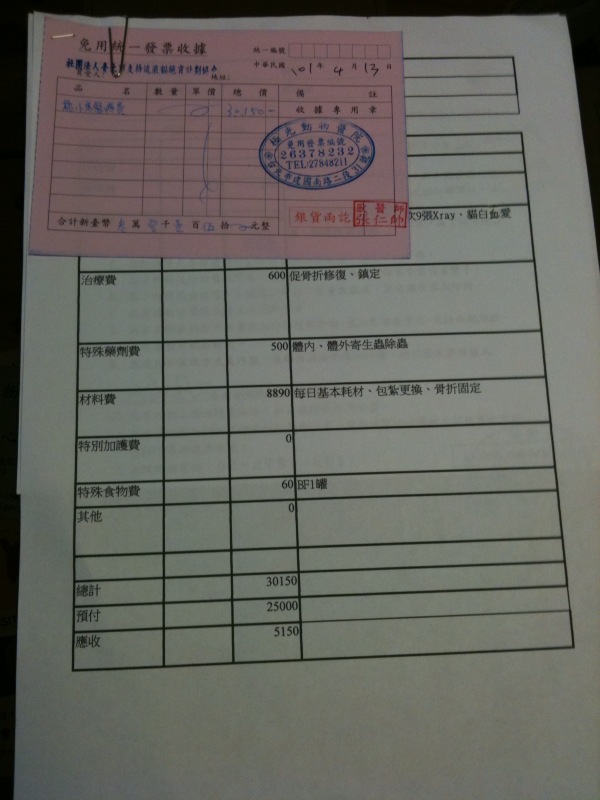 免用統一發票收據
統一編號
中華民國 101年 4月 13日
買受人：
地址：
品名 數量 單價 總價 備註
30150-
收據專用章
極光動物醫院
免用發票編號
26378232
TEL:27848211
建國南路二段31號
銀貨兩訖
獸醫師
張仁帥
合計新臺幣 萬 千 百 拾 元整
次9張Xray、貓白血愛
治療費 600 促骨折修復、鎮定
特殊藥劑費 500 體內、體外寄生蟲除蟲
材料費 8890 每日基本耗材、包紮更換、骨折固定
特別加護費 0
特殊食物費 60 BF1罐
其他 0
總計 30150
預付 25000
應收 5150